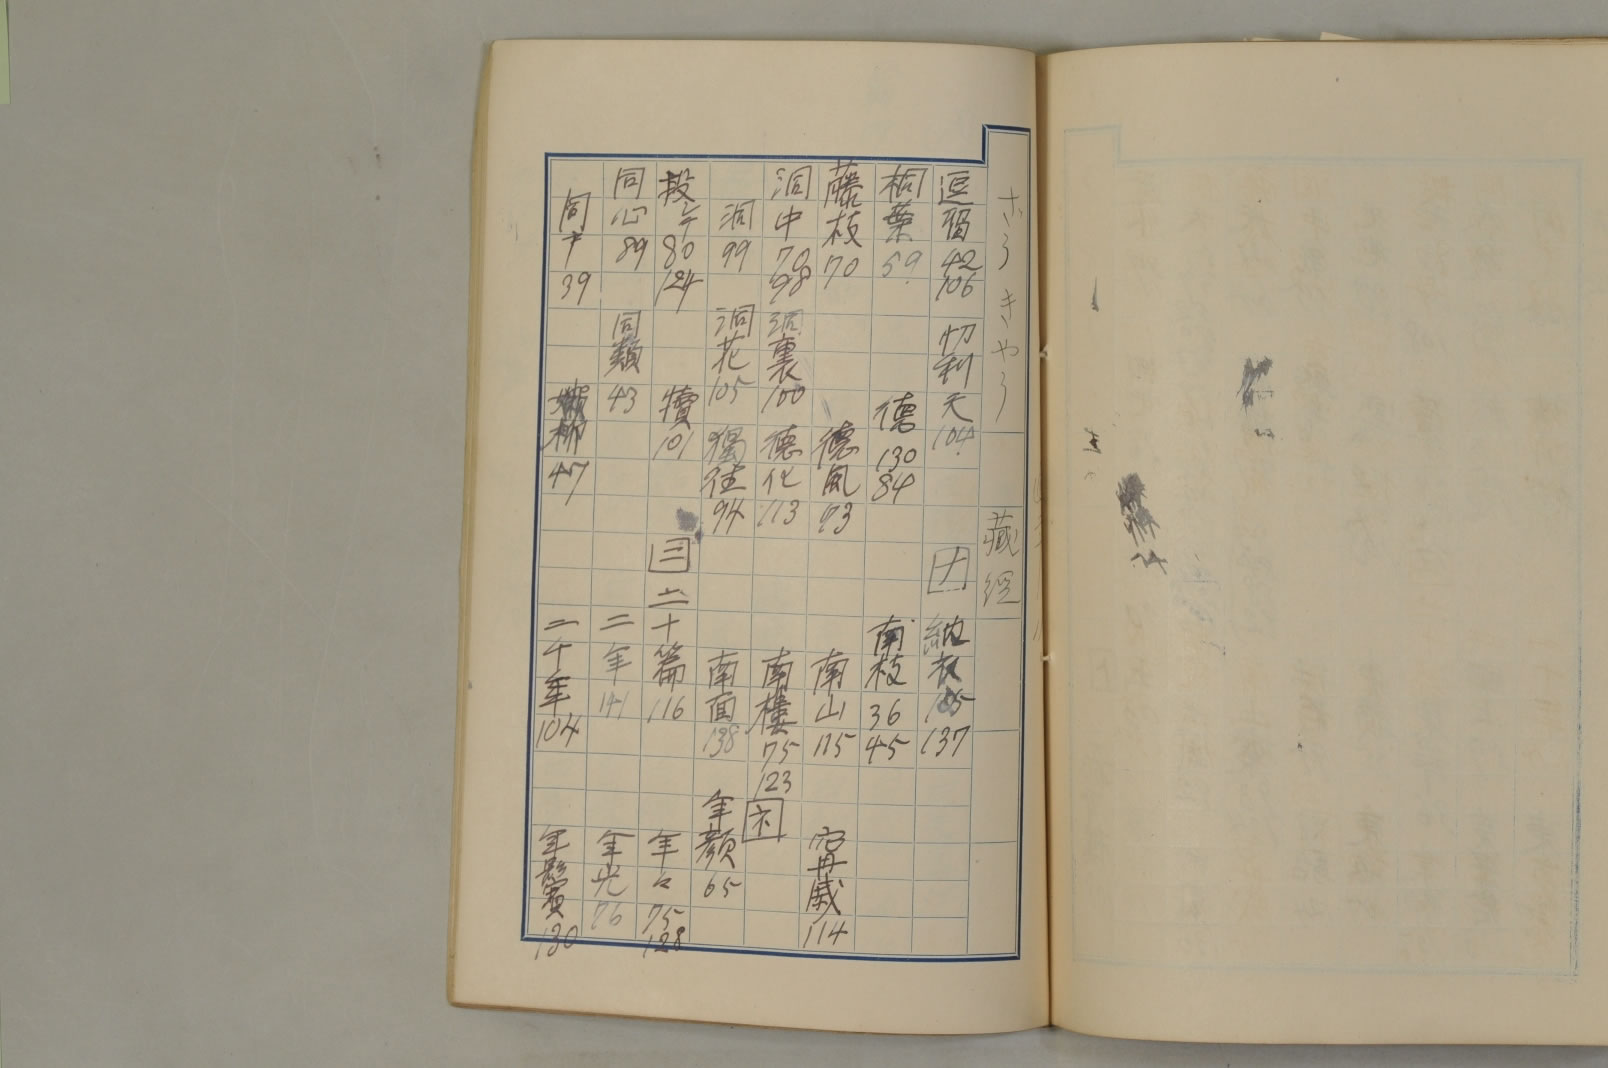 ざうきやう 藏經
逗留 42 106 忉利天 104 ナ 納衣 137
桐葉 59 德 130 84 南枝 36 45
藤枝 70 德風 93 南山 115 114
洞中 70 98 洞裏 100 德化 113 南樓 75 123 ネ
洞 99 洞花 105 獨往 94 南面 138 年顏 65
投 80 124 犢 101 二十篇 116 年々 75 128
同心 89 同類 43 二年 141 年光 76
同 39 柳 47 二千年 104 年 130